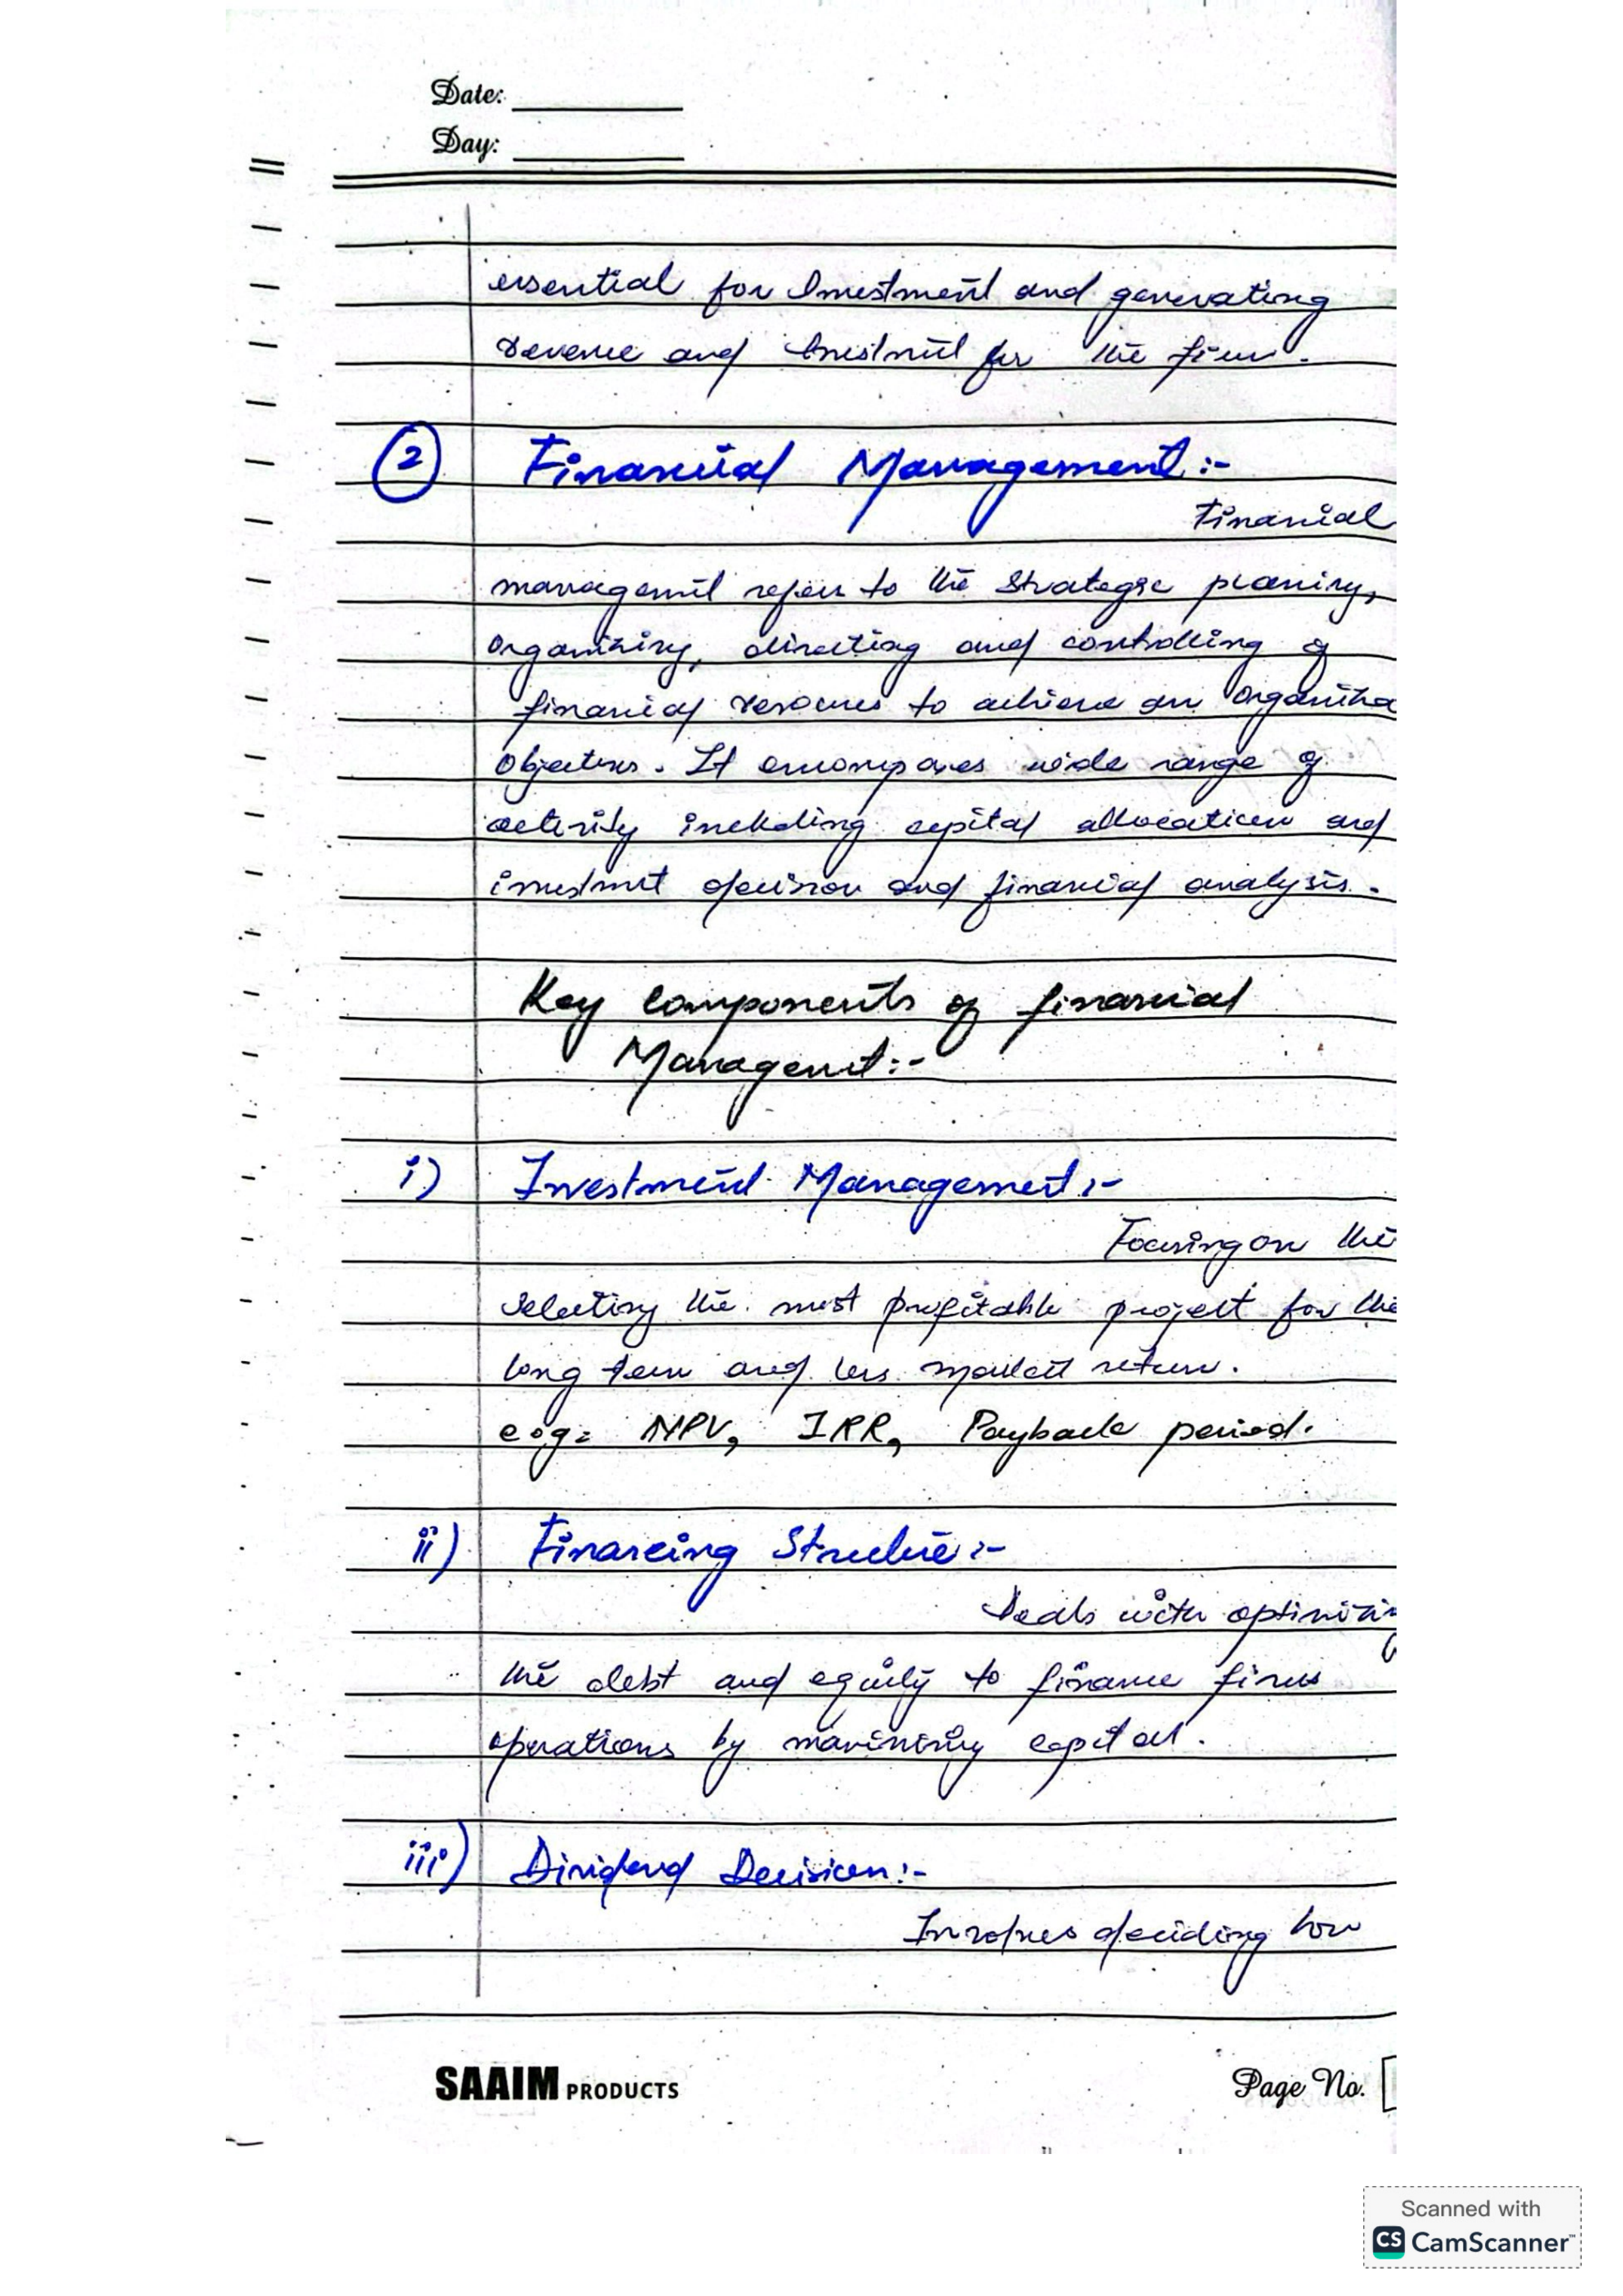 Date:
Day:
essential for Investment and generating
revenue and Investment for the firm.
2 Financial Management:-
Financial
management refers to the Strategic planing,
organizing, directing and controlling of
financial resources to achieve an organiza
Objectives. It encompases wide range of
activity including capital allocation and
investment decision and financial analysis.
Key Components of financial
Management:-
i) Investment Management:-
Focusing on the
Selecting the most profitable project for the
long term and less return.
e.g= NPV, IRR, Payback period.
ii) Financing Structure:-
Deals with optimizing
the debt and equity to finance firms
operations by capital.
iii) Dividend Decision:-
Involves deciding how
SAAIM PRODUCTS
Page No.
Scanned with
CS CamScanner™